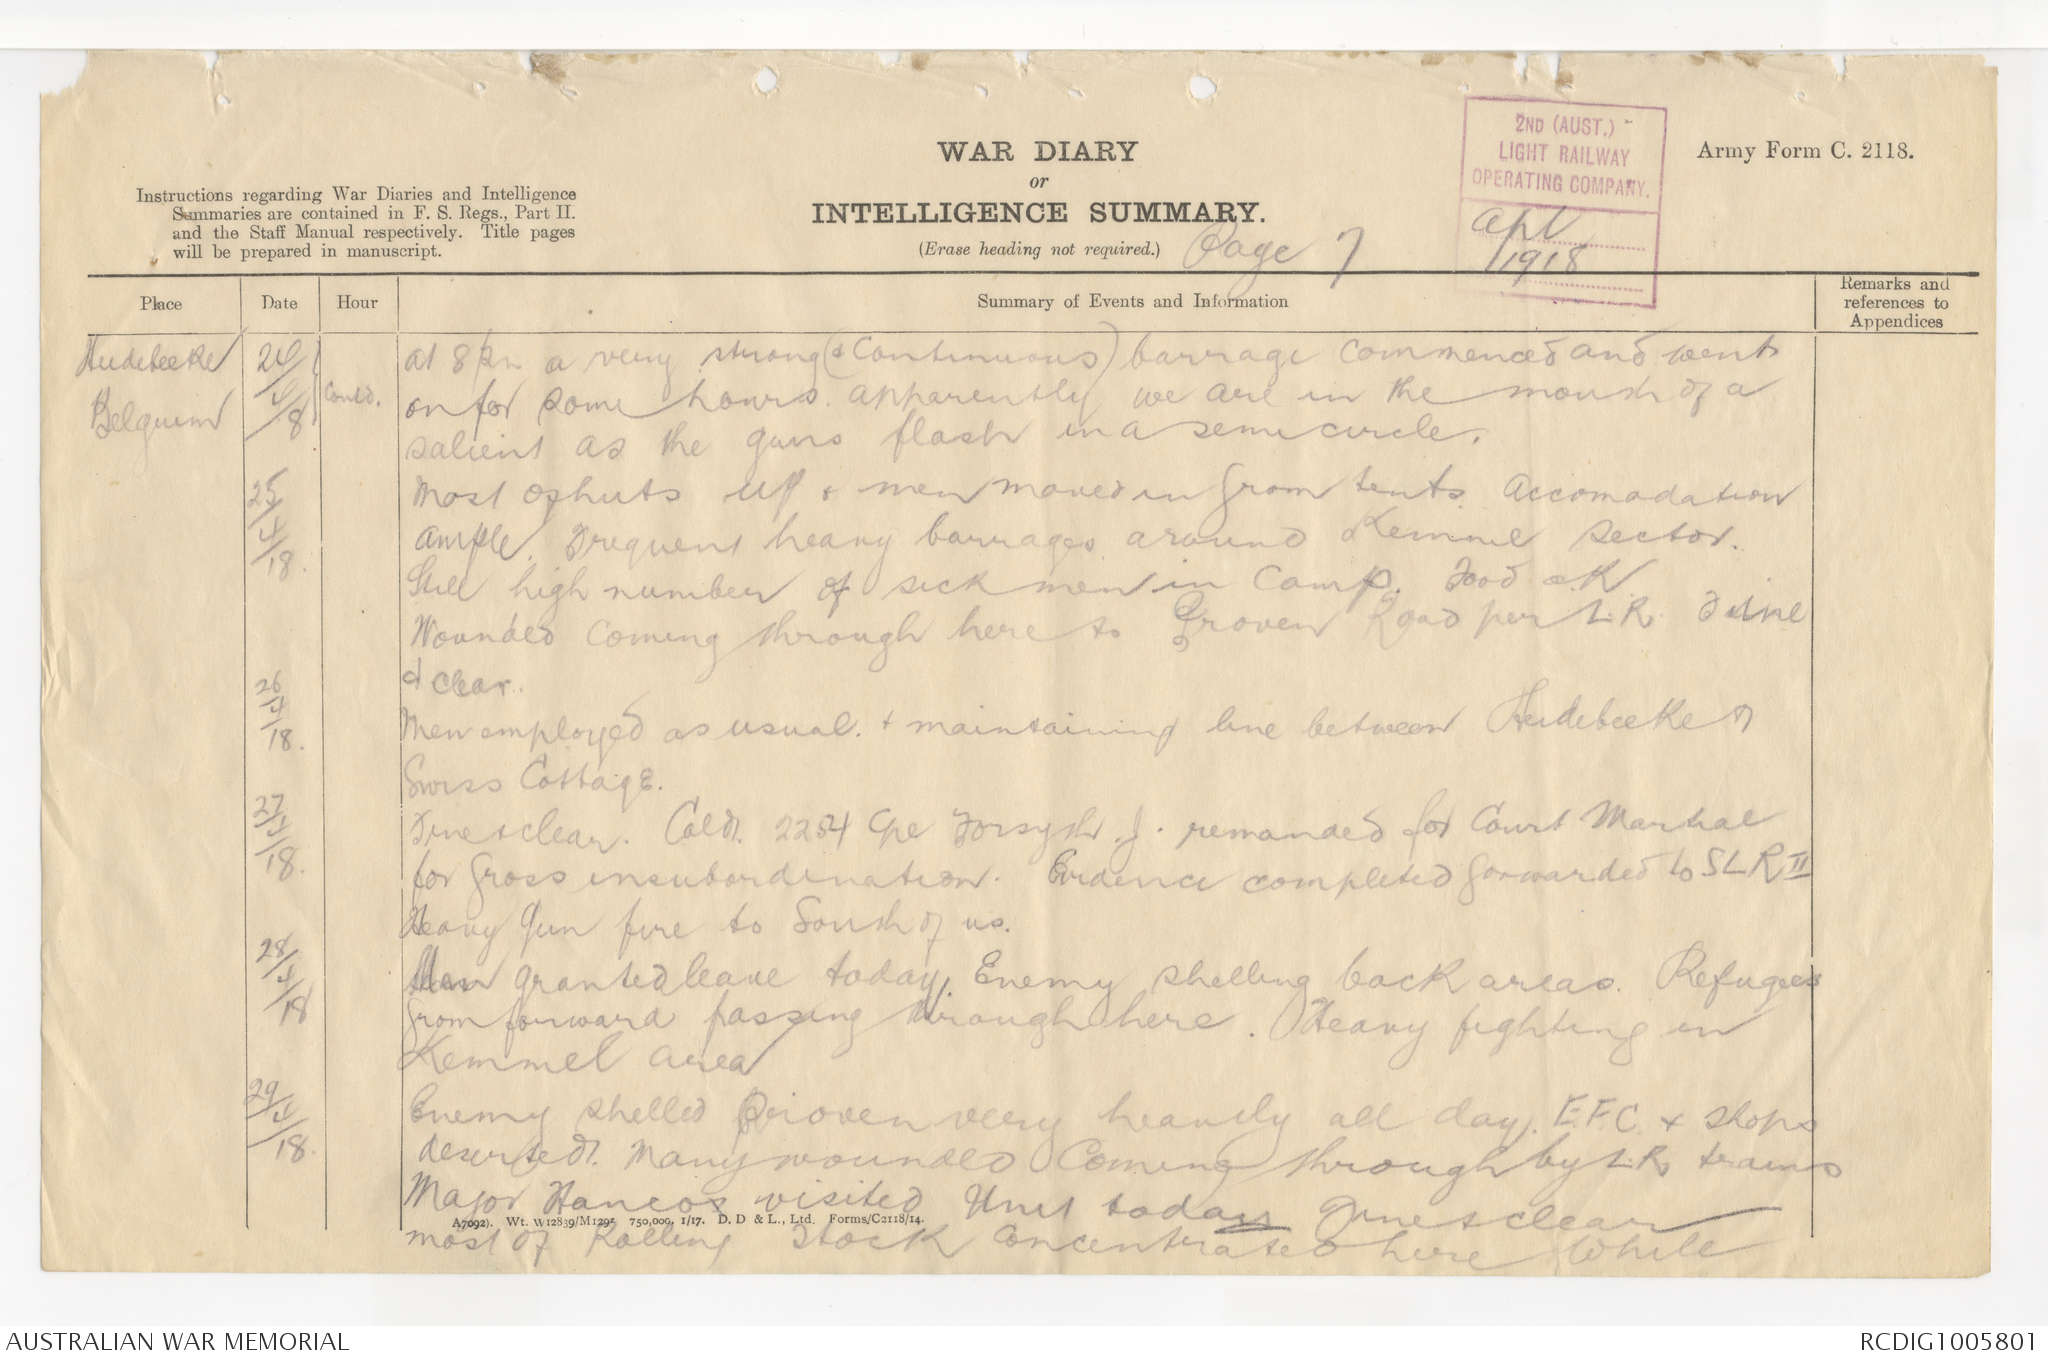 WAR DIARY
or
INTELLIGENCE SUMMARY.
(Erase heading not required.)
Page 7
2ND (AUST.)
LIGHT RAILWAY
OPERATING COMPANY.
Apl
1918
Army Form C. 2118.
Instructions regarding War Diaries and Intelligence
Summaries are contained in F. S. Regs., Part II.
and the Staff Manual respectively. Title pages
will be prepared in manuscript.
Place
Date
Hour
Summary of Events and Information
Remarks and
references to
Appendices
Heidebeeke
Belguim
24/4/18
Contd.
at 8 pm a very strong (& Continuous) barrage commenced and went
on for some hours. apparently we are in the mouth of a
salient as the guns flash in a semi circle.
25/4/18.
Most of huts up & men moved in from tents. Accomodation
ample. Frequent heavy barrages around Kemmel sector.
Still high number of sick men in Camp. Food OK
Wounded coming through here to Proven Road per L.R. Fine
& clear.
26/4/18.
Men employed as usual. & maintaining line between Heidebeeke &
Swiss Cottage.
27/4/18.
Fine & clear. Cold. 2254 Cpl Forsyth. J. remanded for Court Martial
for gross insubordination. Evidence completed forwarded to SLR II
Heavy Gun fire to South of us.
28/4/18
Men granted leave today. Enemy shelling back areas. Refugees
from forward passing through here. Heavy fighting in
Kemmel area
29/4/18.
Enemy shelled Proven very heavily all day. E.F.C. & shops
deserted. Many wounded Coming through by L.R. trains
Major Hancox visited Unit today Fine & clear
most of Rolling Stock concentrated here while
A7092). Wt. W12839/M1295 750,000. 1/17. D. D & L., Ltd. Forms/C2118/14.
AUSTRALIAN WAR MEMORIAL
RCDIG1005801